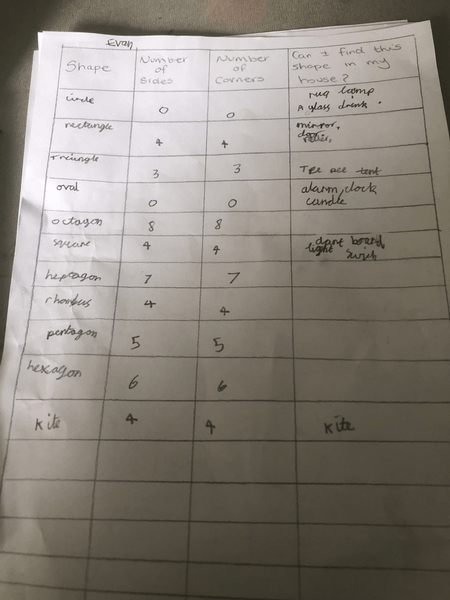 Evan
Shape Number of Sides Number of Corners Can I find this shape in my house?
circle 0 0 rug lamp
A glass drink.
rectangle 4 4 mirror,
door
Triangle 3 3 TEE PEE tent
oval 0 0 alarm, clock
candle
octagon 8 8
square 4 4 dart board,
light swich
heptagon 7 7
rhombus 4 4
pentagon 5 5
hexagon 6 6
kite 4 4 kite